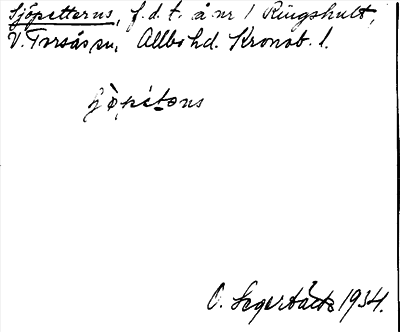 Sjöpetterus, f.d.t. å nr 1 Ringshult,
V. Torsås sn, Allbo hd. Kronob. l.
O. Segerbäck 1934.